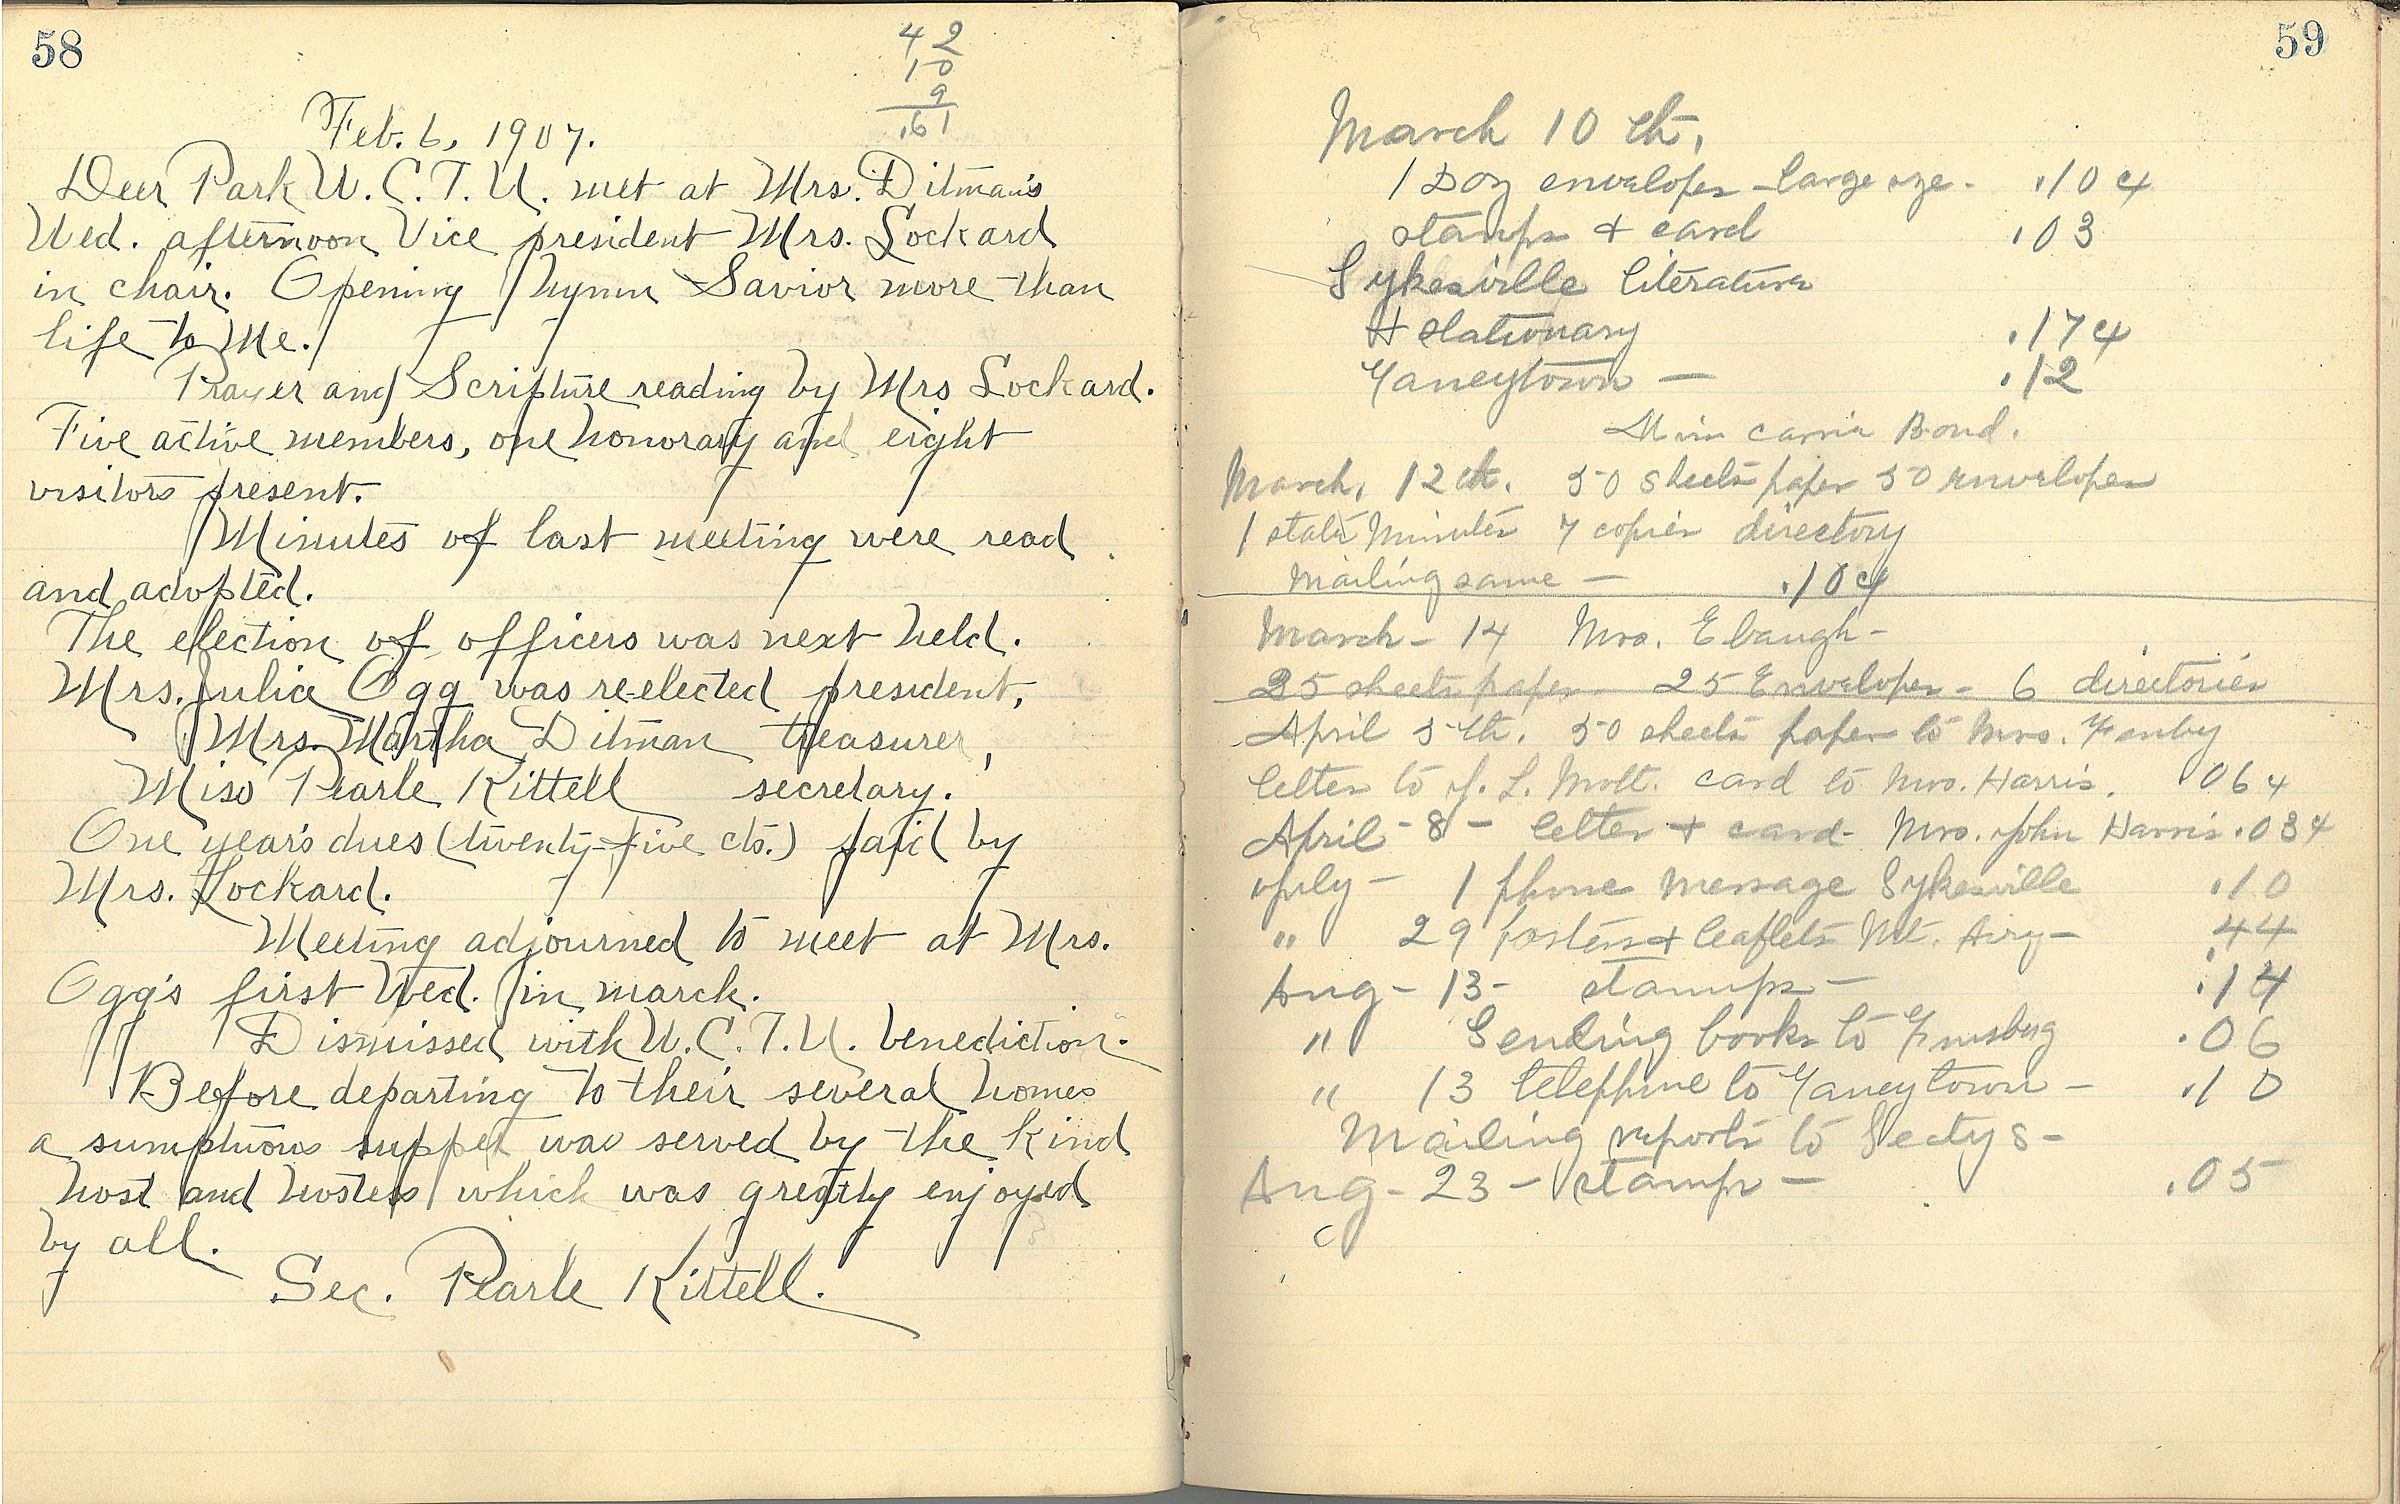 58
42
10
9
.61
Feb. 6, 1907.
Deer Park W. C. T. U. met at Mrs. Ditman's
Wed. afternoon Vice president Mrs. Lockard
in chair. Opening hymn Savior more than
life to Me.
Prayer and Scripture reading by Mrs Lockard.
Five active members, one honorary and eight
visitors present.
Minutes of last meeting were read
and adopted.
The election of officers was next held.
Mrs. Julia Ogg was re-elected president,
Mrs. Martha Ditman treasurer,
Miss Pearle Kittell secretary.
One year's dues (twenty-five cts.) paid by
Mrs. Lockard.
Meeting adjourned to meet at Mrs.
Ogg's first Wed. in march.
Dismissed with W. C. T. U. benediction.
Before departing to their several homes
a sumptuous supper was served by the kind
host and hostess which was greatly enjoyed
by all.
Sec. Pearle Kittell.
59
March 10 th,
1 Doz envelopes - large size - .10 c
stamps + card .03
Sykesville literature
+ stationary .17 c
Taneytown — .12
Miss Carrie Bond.
March, 12 th. 50 sheets paper 50 envelopes
1 state Minutes 7 copies directory
mailing same — .10 c
March - 14 Mrs. Ebaugh -
25 sheets paper - 25 Envelopes - 6 directories
April 5 th. 50 sheets paper to Mrs.
letter to L. Mott. card to Mrs. Harris. 06 c
April - 8 - letter + card - Mrs. John Harris .03 c
July - 1 phone message Sykesville .10
" 29 posters + leaflets Mt. Airy - .44
Aug - 13 - stamps - .14
" Sending books to .06
" 13 telephone to Taneytown - .10
Mailing reports to Sectys -
Aug - 23 - stamps - .05